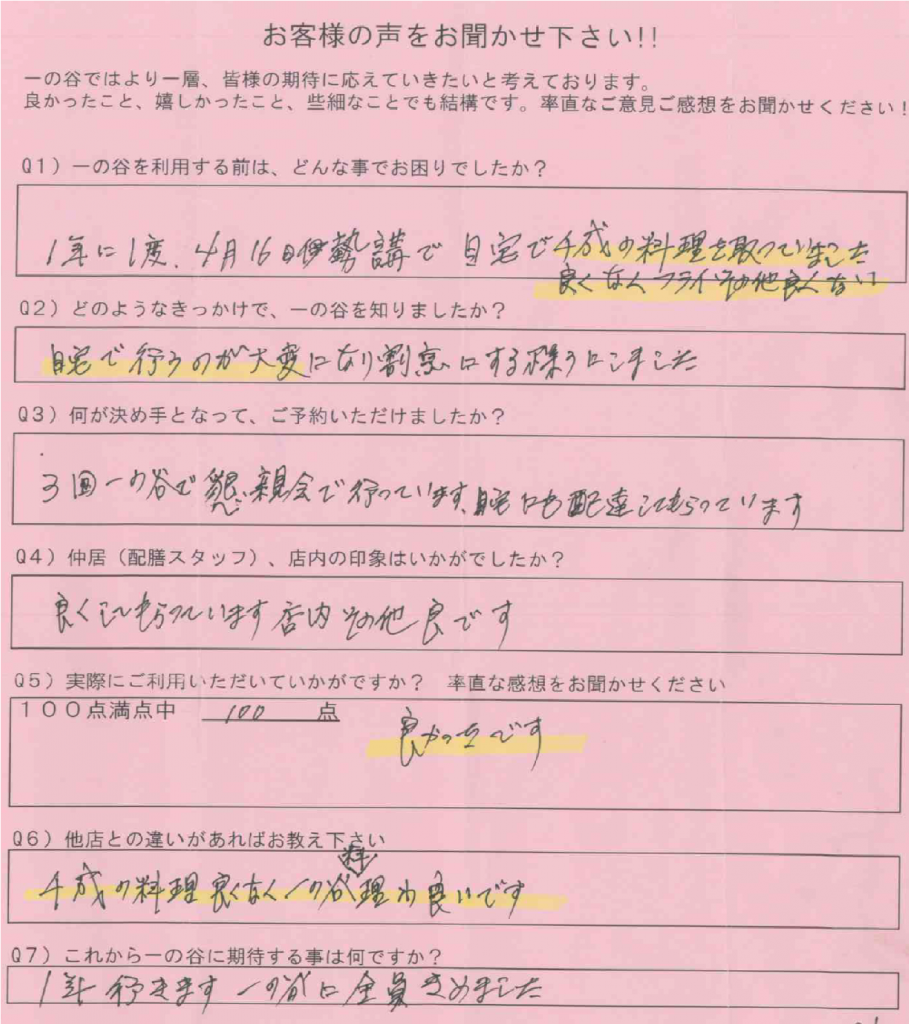 お客様の声をお聞かせ下さい!!
一の谷ではより一層、皆様の期待に応えていきたいと考えております。
良かったこと、嬉しかったこと、些細なことでも結構です。率直なご意見ご感想をお聞かせください!
Q1)一の谷を利用する前は、どんな事でお困りでしたか?
1年に1度、4月16日伊勢講で自宅で千成の料理を取っていました
良くなくフライその他良くない
Q2)どのようなきっかけで、一の谷を知りましたか?
自宅で行うのが大変になり割烹にする様うにしました
Q3)何が決め手となって、ご予約いただけましたか?
3回一の谷で懇親会で行っています、自宅にも配達してもらっています
Q4)仲居(配膳スタッフ)、店内の印象はいかがでしたか?
良くしてもらっています店内その他良です
Q5)実際にご利用いただいていかがですか? 率直な感想をお聞かせください
100点満点中 100 点
良かったです
Q6)他店との違いがあればお教え下さい
千成の料理良くなく一の谷料理わ良いです
Q7)これから一の谷に期待する事は何ですか?
1年行きます一の谷に全員きめました